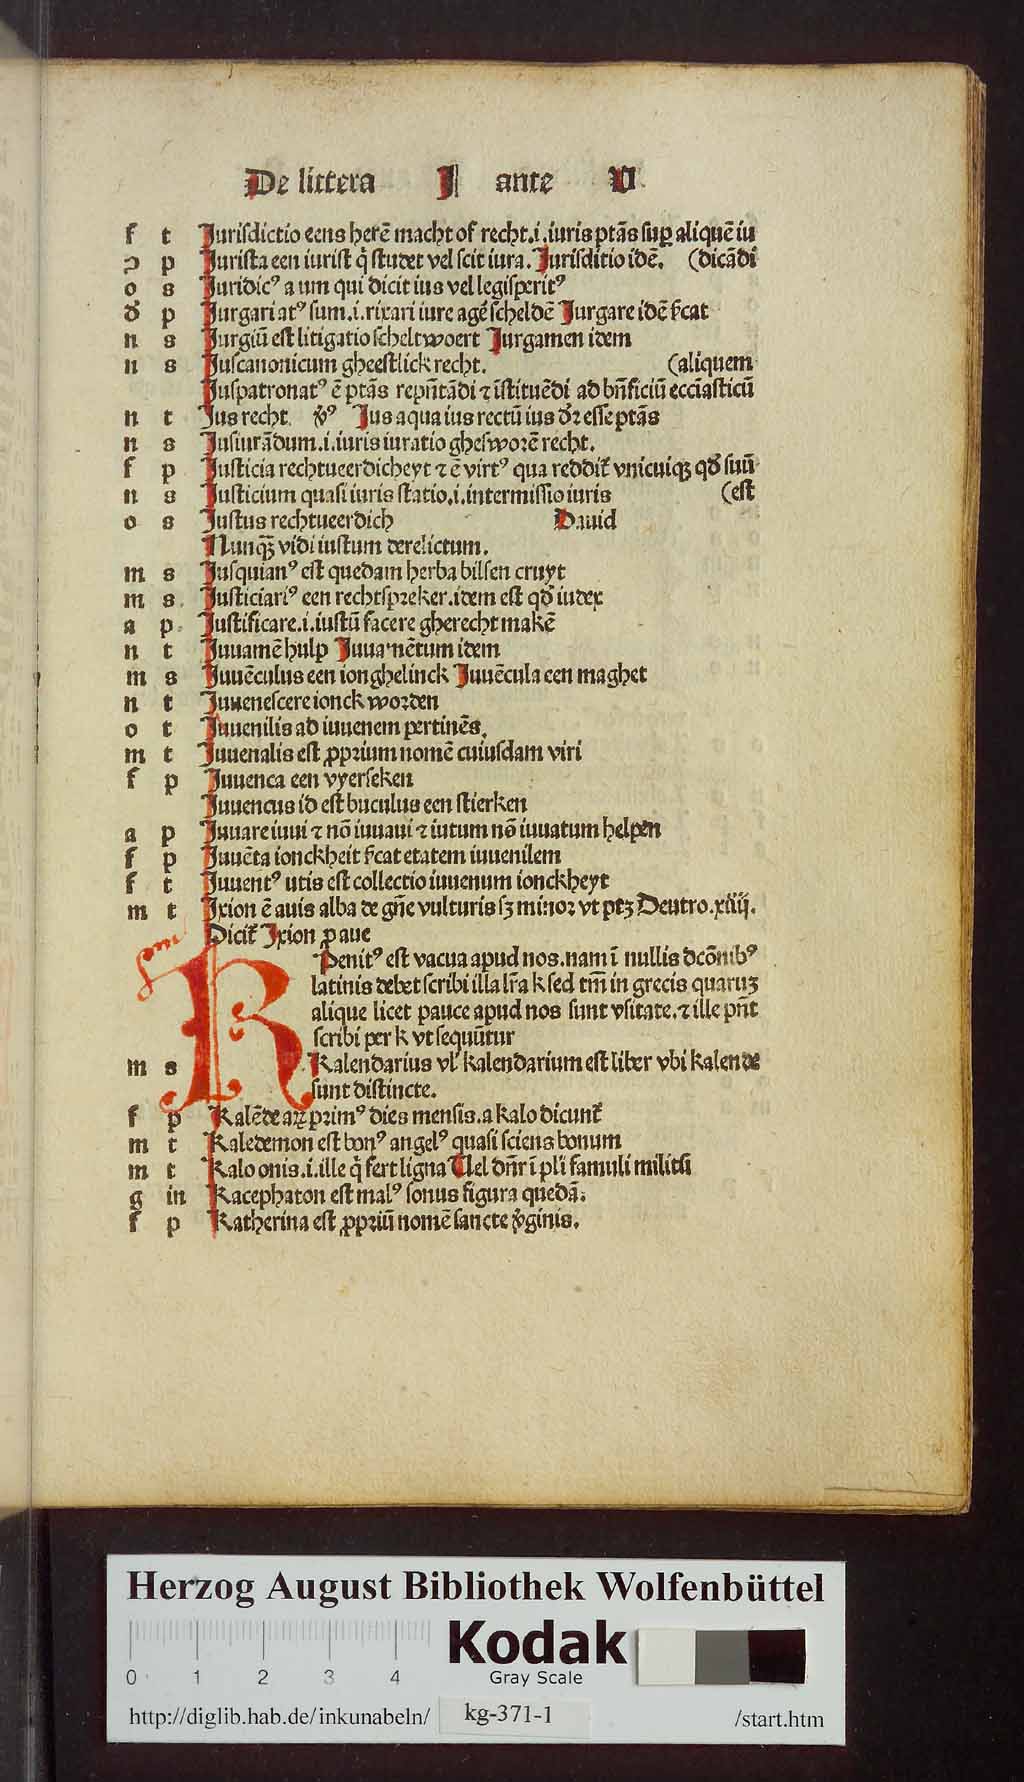 De littera J ante V
f t Jurisdictio eens herē macht of recht.i.iuris ptās suꝑ aliquē iu
ɔ p Jurista een iurist q̇ studet vel scit iura. Jurisditio idē. (dicādi
o s Juridicꝰ a um qui dicit ius vel legisperitꝰ
ꝺ p Jurgari atꝰ sum.i.rixari iure agē scheldē Jurgare idē ſcat
n s Jurgiū est litigatio scheltwoert Jurgamen idem
n s Juscanonicum gheestlick recht. (aliquem
Juspatronatꝰ ē ptās repn̄tādi ⁊ īstituēdi ad bn̄ficiū eccīasticū
n t Jus recht ꝟꝰ Jus aqua ius rectū ius dꝛ esse ptās
n s Jusiurādum.i.iuris iuratio ghesworē recht.
f p Justicia rechtueerdicheyt ⁊ ē virtꝰ qua reddit᷑ vnicuiqꝫ qđ suū
n s Justicium quasi iuris statio.i.intermissio iuris (est
o s Justus rechtueerdich Dauid
Nunqꝫ vidi iustum derelictum.
m s Jusquianꝰ est quedam herba bilsen cruyt
m s Justiciariꝰ een rechtspreker.idem est qđ iudex
a p Justificare.i.iustū facere gherecht makē
n t Juuamē hulp Juuamētum idem
m s Juuēculus een ionghelinck Juuēcula een maghet
n t Juuenescere ionck worden
o t Juuenilis ad iuuenem pertinēs.
m t Juuenalis est ꝓprium nomē cuiusdam viri
f p Juuenca een vyerseken
Juuencus id est buculus een stierken
a p Juuare iuui ⁊ nō iuuaui ⁊ iutum nō iuuatum helpen
f p Juuēta ionckheit ſcat etatem iuuenilem
f t Juuentꝰ utis est collectio iuuenum ionckheyt
m t Jxion ē auis alba de gn̄e vulturis sꝫ minor vt ptꝫ Deutro.xiiij.
Dicit᷑ Jxion ꝓ aue
K Penitꝰ est vacua apud nos.nam ī nullis dcōnibꝰ
latinis debet scribi illa lr̄a k sed tm̄ in grecis quaruꝫ
alique licet pauce apud nos sunt vsitate.⁊ ille pn̄t
scribi per k vt sequūtur
m s Kalendarius vl̓ kalendarium est liber vbi kalende
sunt distincte.
f p Kalēde aꝝ primꝰ dies mensis.a kalo dicunt᷑
m t Kaledemon est bonꝰ angelꝰ quasi sciens bonum
m t Kalo onis.i.ille q̇ fert ligna Uel dn̄r ī pli famuli militū
g in Kacephaton est malꝰ sonus figura quedā.
f p Katherina est ꝓpriū nomē sancte ꝟginis.
Herzog August Bibliothek Wolfenbüttel
0 1 2 3 4
Kodak
Gray Scale
http://diglib.hab.de/inkunabeln/ kg-371-1 /start.htm